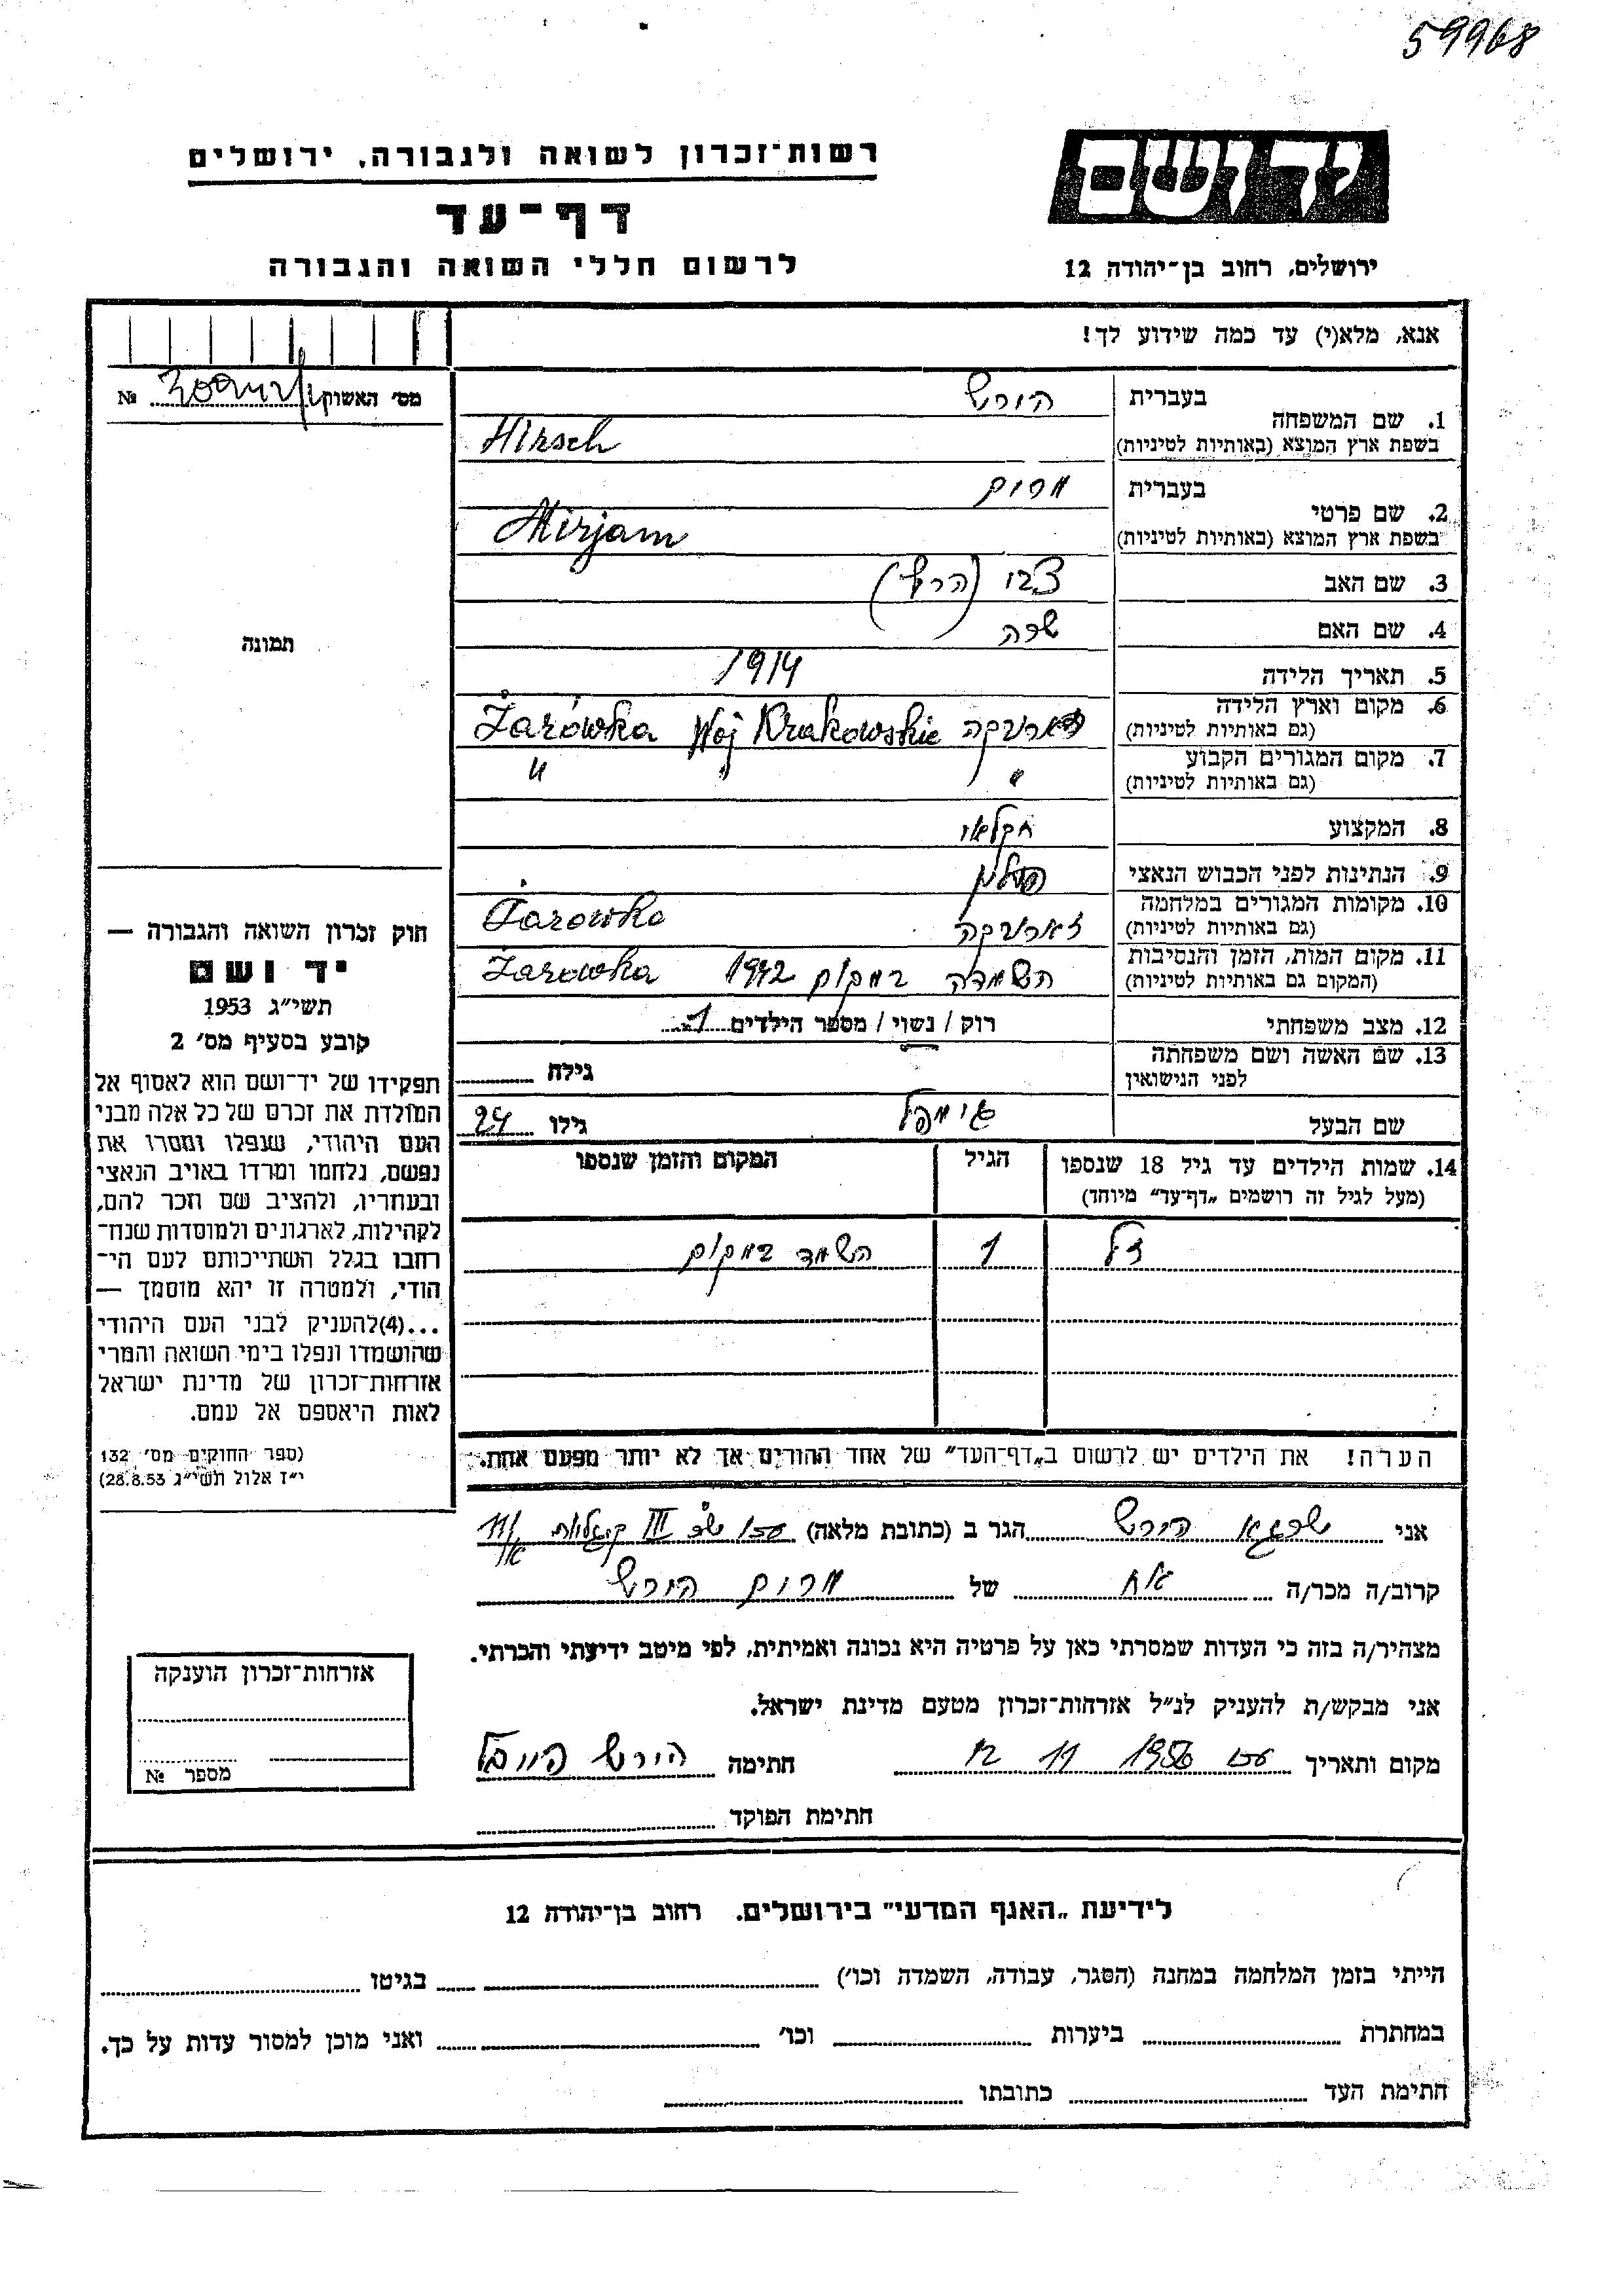 59968
רשות־זכרון לשואה ולגבורה, ירושלים
יד ושם
דף־עד
לרשום חללי השואה והגבורה
ירושלים, רחוב בן־יהודה 12
אנא, מלא(י) עד כמה שידוע לך!
מס׳ האשוק №
1. שם המשפחה בעברית הירש
בשפת ארץ המוצא (באותיות לטיניות) Hirsch
2. שם פרטי בעברית מרים
בשפת ארץ המוצא (באותיות לטיניות) Mirjam
3. שם האב צבי (הרש)
4. שם האם שרה
תמונה
5. תאריך הלידה 1914
6. מקום וארץ הלידה
(גם באותיות לטיניות) Żarówka Woj Krakowskie
7. מקום המגורים הקבוע
(גם באותיות לטיניות) " "
8. המקצוע חקלאי
9. הנתינות לפני הכבוש הנאצי פולין
10. מקומות המגורים במלחמה
(גם באותיות לטיניות) זארובקה Żarowka
11. מקום המות, הזמן והנסיבות
(המקום גם באותיות לטיניות) השמדה במקום 1942 Żarowka
12. מצב משפחתי רוק / נשוי / מספר הילדים 1
13. שם האשה ושם משפחתה
לפני הנישואין גילה
שם הבעל גימפל גילו 24
14. שמות הילדים עד גיל 18 שנספו הגיל המקום והזמן שנספו
(מעל לגיל זה רושמים „דף־עד״ מיוחד)
1 השמד במקום
הערה! את הילדים יש לרשום ב„דף־העד״ של אחד ההורים אך לא יותר מפעם אחת.
חוק זכרון השואה והגבורה —
יד ושם
תשי״ג 1953
קובע בסעיף מס׳ 2
תפקידו של יד־ושם הוא לאסוף אל
המולדת את זכרם של כל אלה מבני
העם היהודי, שנפלו ומסרו את
נפשם, נלחמו ומרדו באויב הנאצי
ובעוזריו, ולהציב שם וזכר להם,
לקהילות, לארגונים ולמוסדות שנח־
רחבו בגלל השתייכותם לעם הי־
הודי, ולמטרה זו יהא מוסמך —
...(4)להעניק לבני העם היהודי
שהושמדו ונפלו בימי השואה והמרי
אזרחות־זכרון של מדינת ישראל
לאות היאספם אל עמם.
(ספר החוקים מס׳ 132
י״ז אלול תשי״ג 28.8.53)
אני שרגא הירש הגר ב (כתובת מלאה)
קרוב/ה מכר/ה אח של מרים הירש
מצהיר/ה בזה כי העדות שמסרתי כאן על פרטיה היא נכונה ואמיתית, לפי מיטב ידיעתי והכרתי.
אני מבקש/ת להעניק לנ״ל אזרחות־זכרון מטעם מדינת ישראל.
מקום ותאריך 12 11 1956 חתימה הירש
חתימת הפוקד
אזרחות־זכרון הוענקה
מספר №
לידיעת „האגף המדעי״ בירושלים. רחוב בן־יהודה 12
הייתי בזמן המלחמה במחנה (הסגר, עבודה, השמדה וכו׳) בגיטו
במחתרת ביערות וכו׳ ואני מוכן למסור עדות על כך.
חתימת העד כתובתו